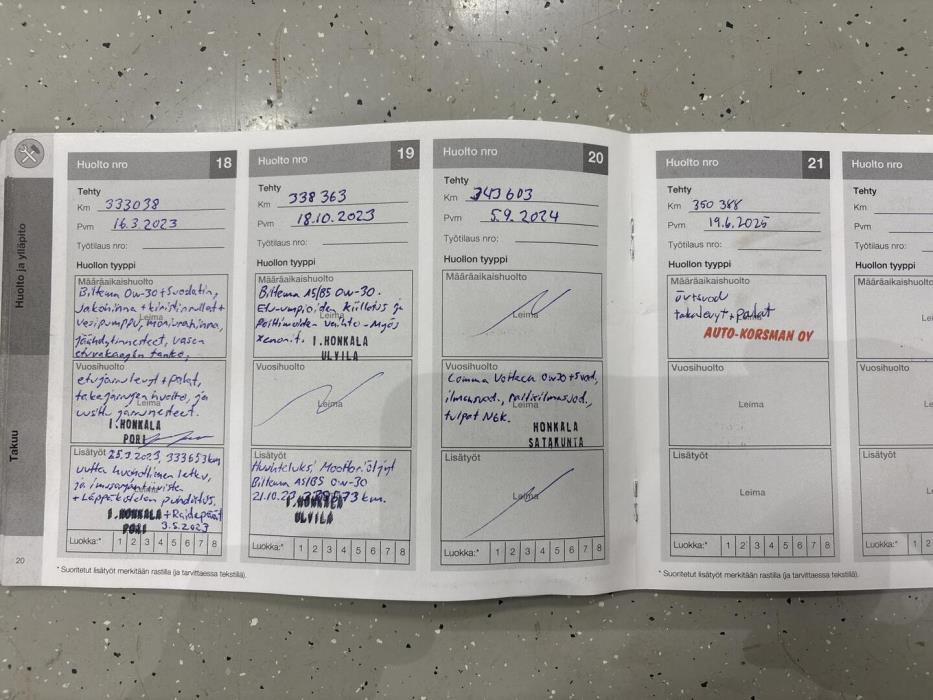 Huolto ja ylläpito
Takuu
20
Huolto nro 18
Tehty
Km 333038
Pvm 16.3.2023
Työtilaus nro:
Huollon tyyppi
Määräaikaishuolto
Biltema 0w-30 + Suodatin,
Jakohihna + kiristinrullat +
vesipumppu, moniurahihna,
Leima
Jäähdytinnesteet, vasen
etuvakaajan tanko,
Vuosihuolto
etujarrulevyt + palat,
takajarrujen huolto, ja
Leima
uusittu jarrunesteet.
I.HONKALA
PORI
Lisätyöt 25.3.2023, 333653km
uutta huohottimen letku,
ja imusarjan tiiviste
+ Läppäkotelon puhdistus.
I.HONKALA + Raidepäät
PORI 3.5.2023
Luokka:* 1 2 3 4 5 6 7 8
* Suoritetut lisätyöt merkitään rastilla (ja tarvittaessa tekstillä).
Huolto nro 19
Tehty
Km 338 363
Pvm 18.10.2023
Työtilaus nro:
Huollon tyyppi
Määräaikaishuolto
Biltema A5/B5 0w-30.
Etu-umpioiden kiillotus ja
Leima
Polttimoiden vaihto - Myös
xenonit. I.HONKALA
ULVILA
Vuosihuolto
Leima
Lisätyöt
Huuhteluksi Moottoriöljyt
Biltema A5/B5 0w-30
21.10.23 km.
I.HONKALA
ULVILA
Luokka:* 1 2 3 4 5 6 7 8
Huolto nro 20
Tehty
Km 343 603
Pvm 5.9.2024
Työtilaus nro:
Huollon tyyppi
Määräaikaishuolto
Leima
Vuosihuolto
Comma 0w30 + Suod,
ilmansuod., raitisilmasuod.,
Leima
tulpat NGK.
HONKALA
SATAKUNTA
Lisätyöt
Leima
Luokka:* 1 2 3 4 5 6 7 8
Huolto nro 21
Tehty
Km 350 388
Pvm 19.6.2025
Työtilaus nro:
Huollon tyyppi
Määräaikaishuolto
öv+svod
takalevyt + palat
AUTO-KORSMAN OY
Vuosihuolto
Leima
Lisätyöt
Leima
Luokka:* 1 2 3 4 5 6 7 8
* Suoritetut lisätyöt merkitään rastilla (ja tarvittaessa tekstillä).
Huolto nro
Tehty
Km
Pvm
Työtilaus nro:
Huollon tyyppi
Määräaikaishuolto
Vuosihuolto
Lisätyöt
Luokka:* 1 2